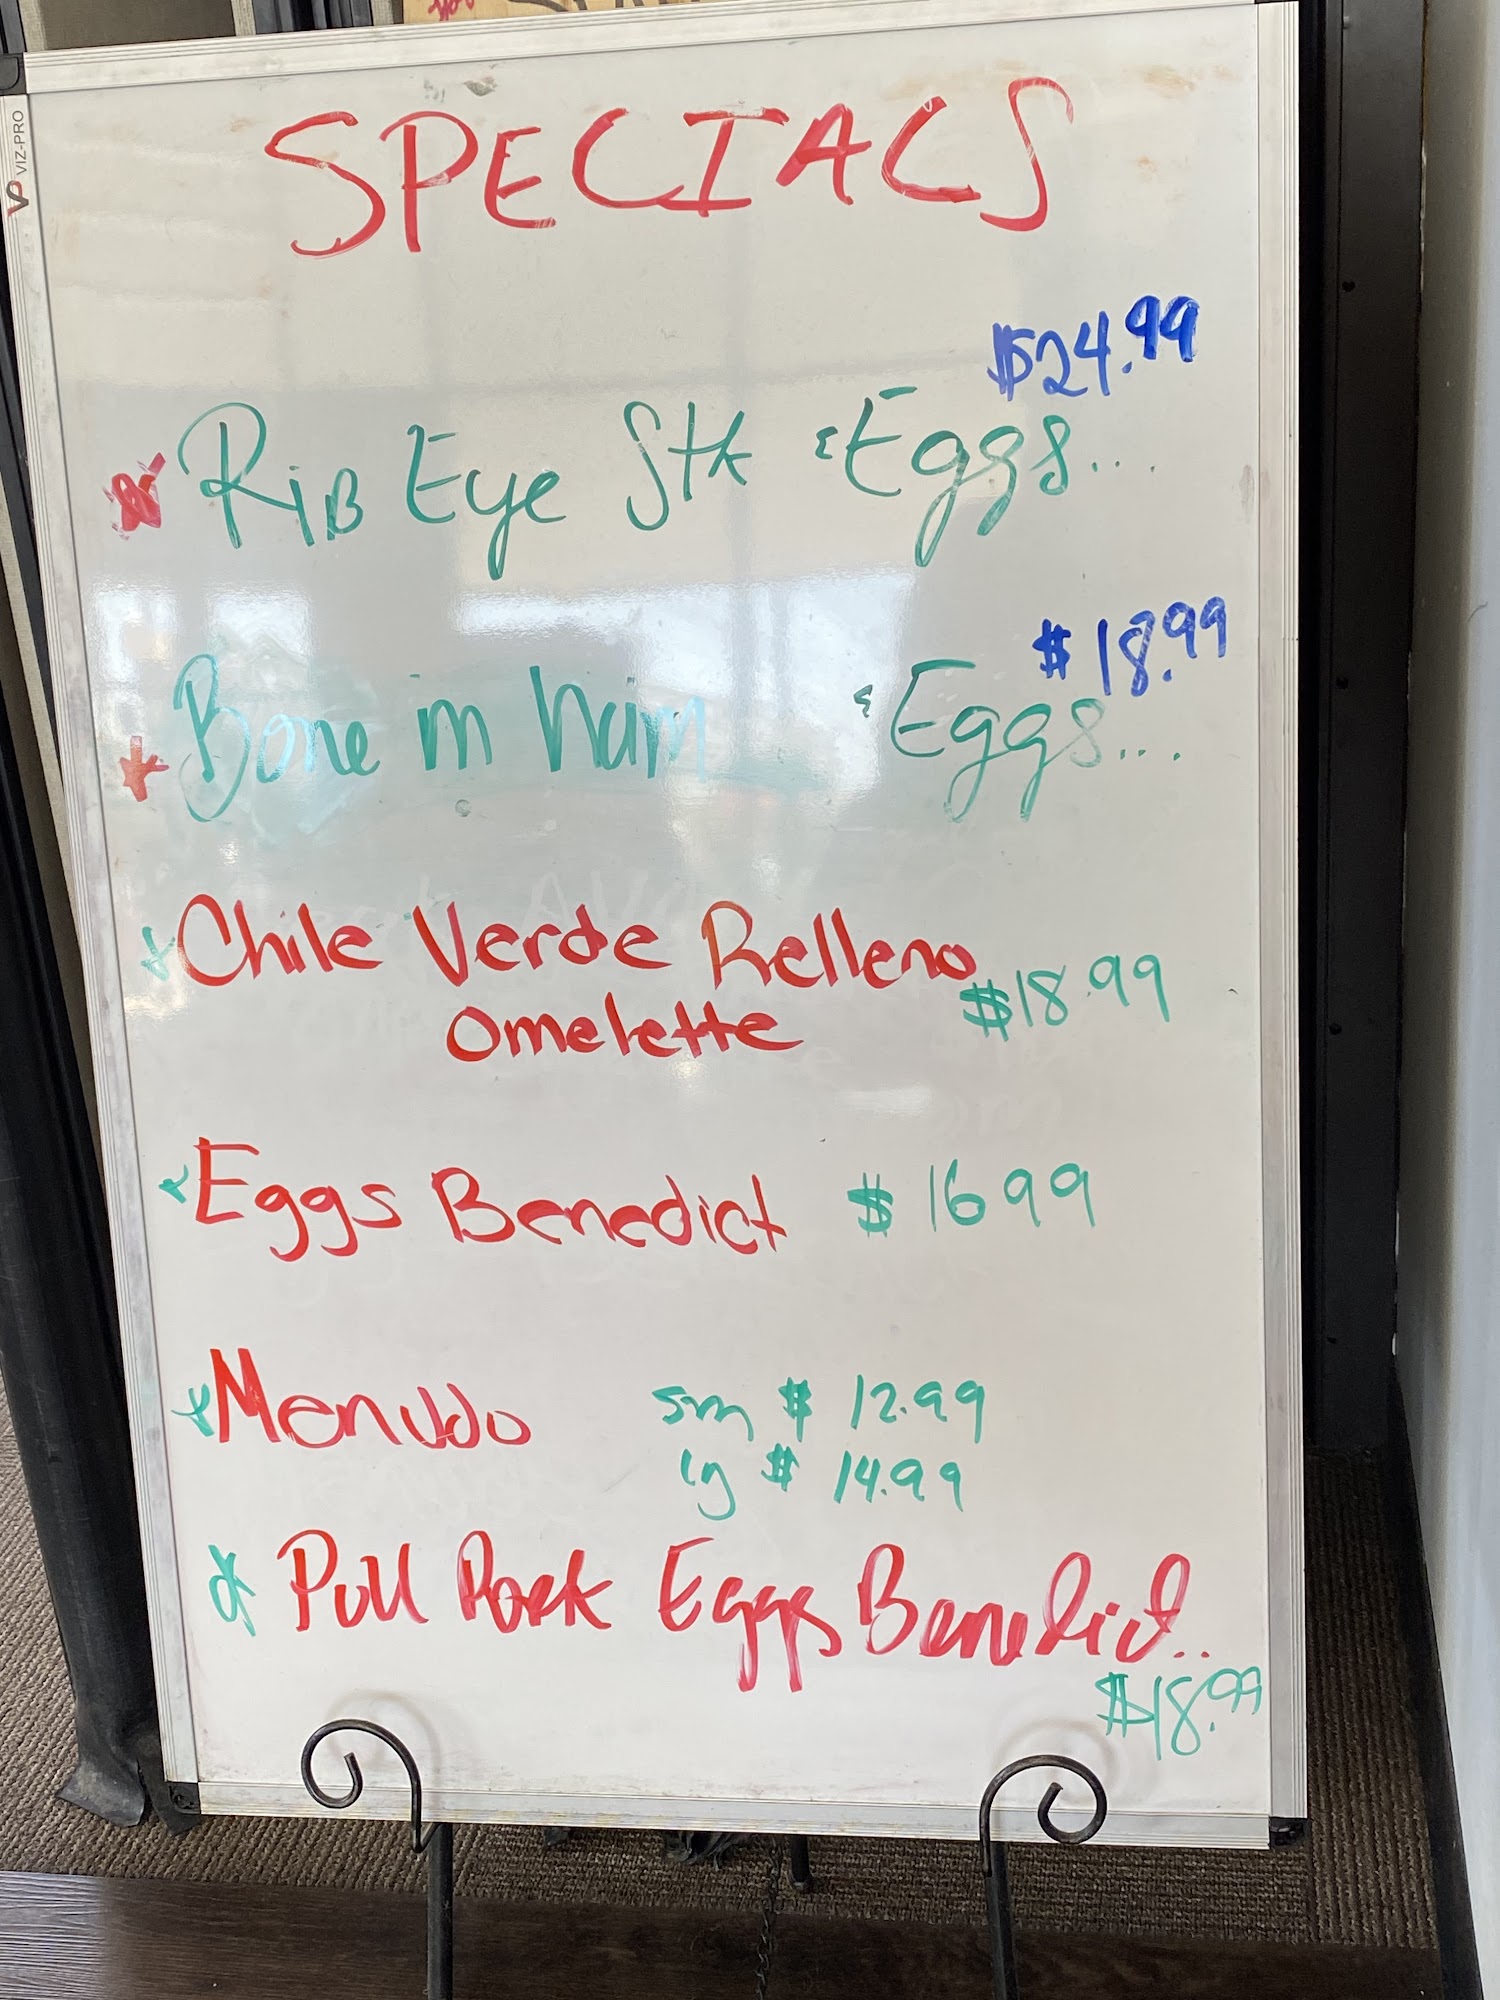 VIZ-PRO
SPECIALS
$24.99
Rib Eye Stk & Eggs...
$18.99
Bone in ham & Eggs...
Chile Verde Relleno
Omelette $18.99
Eggs Benedict $16 99
Menudo sm $ 12.99
lg $ 14.99
Pull Pork Eggs Benedict..
$18.99